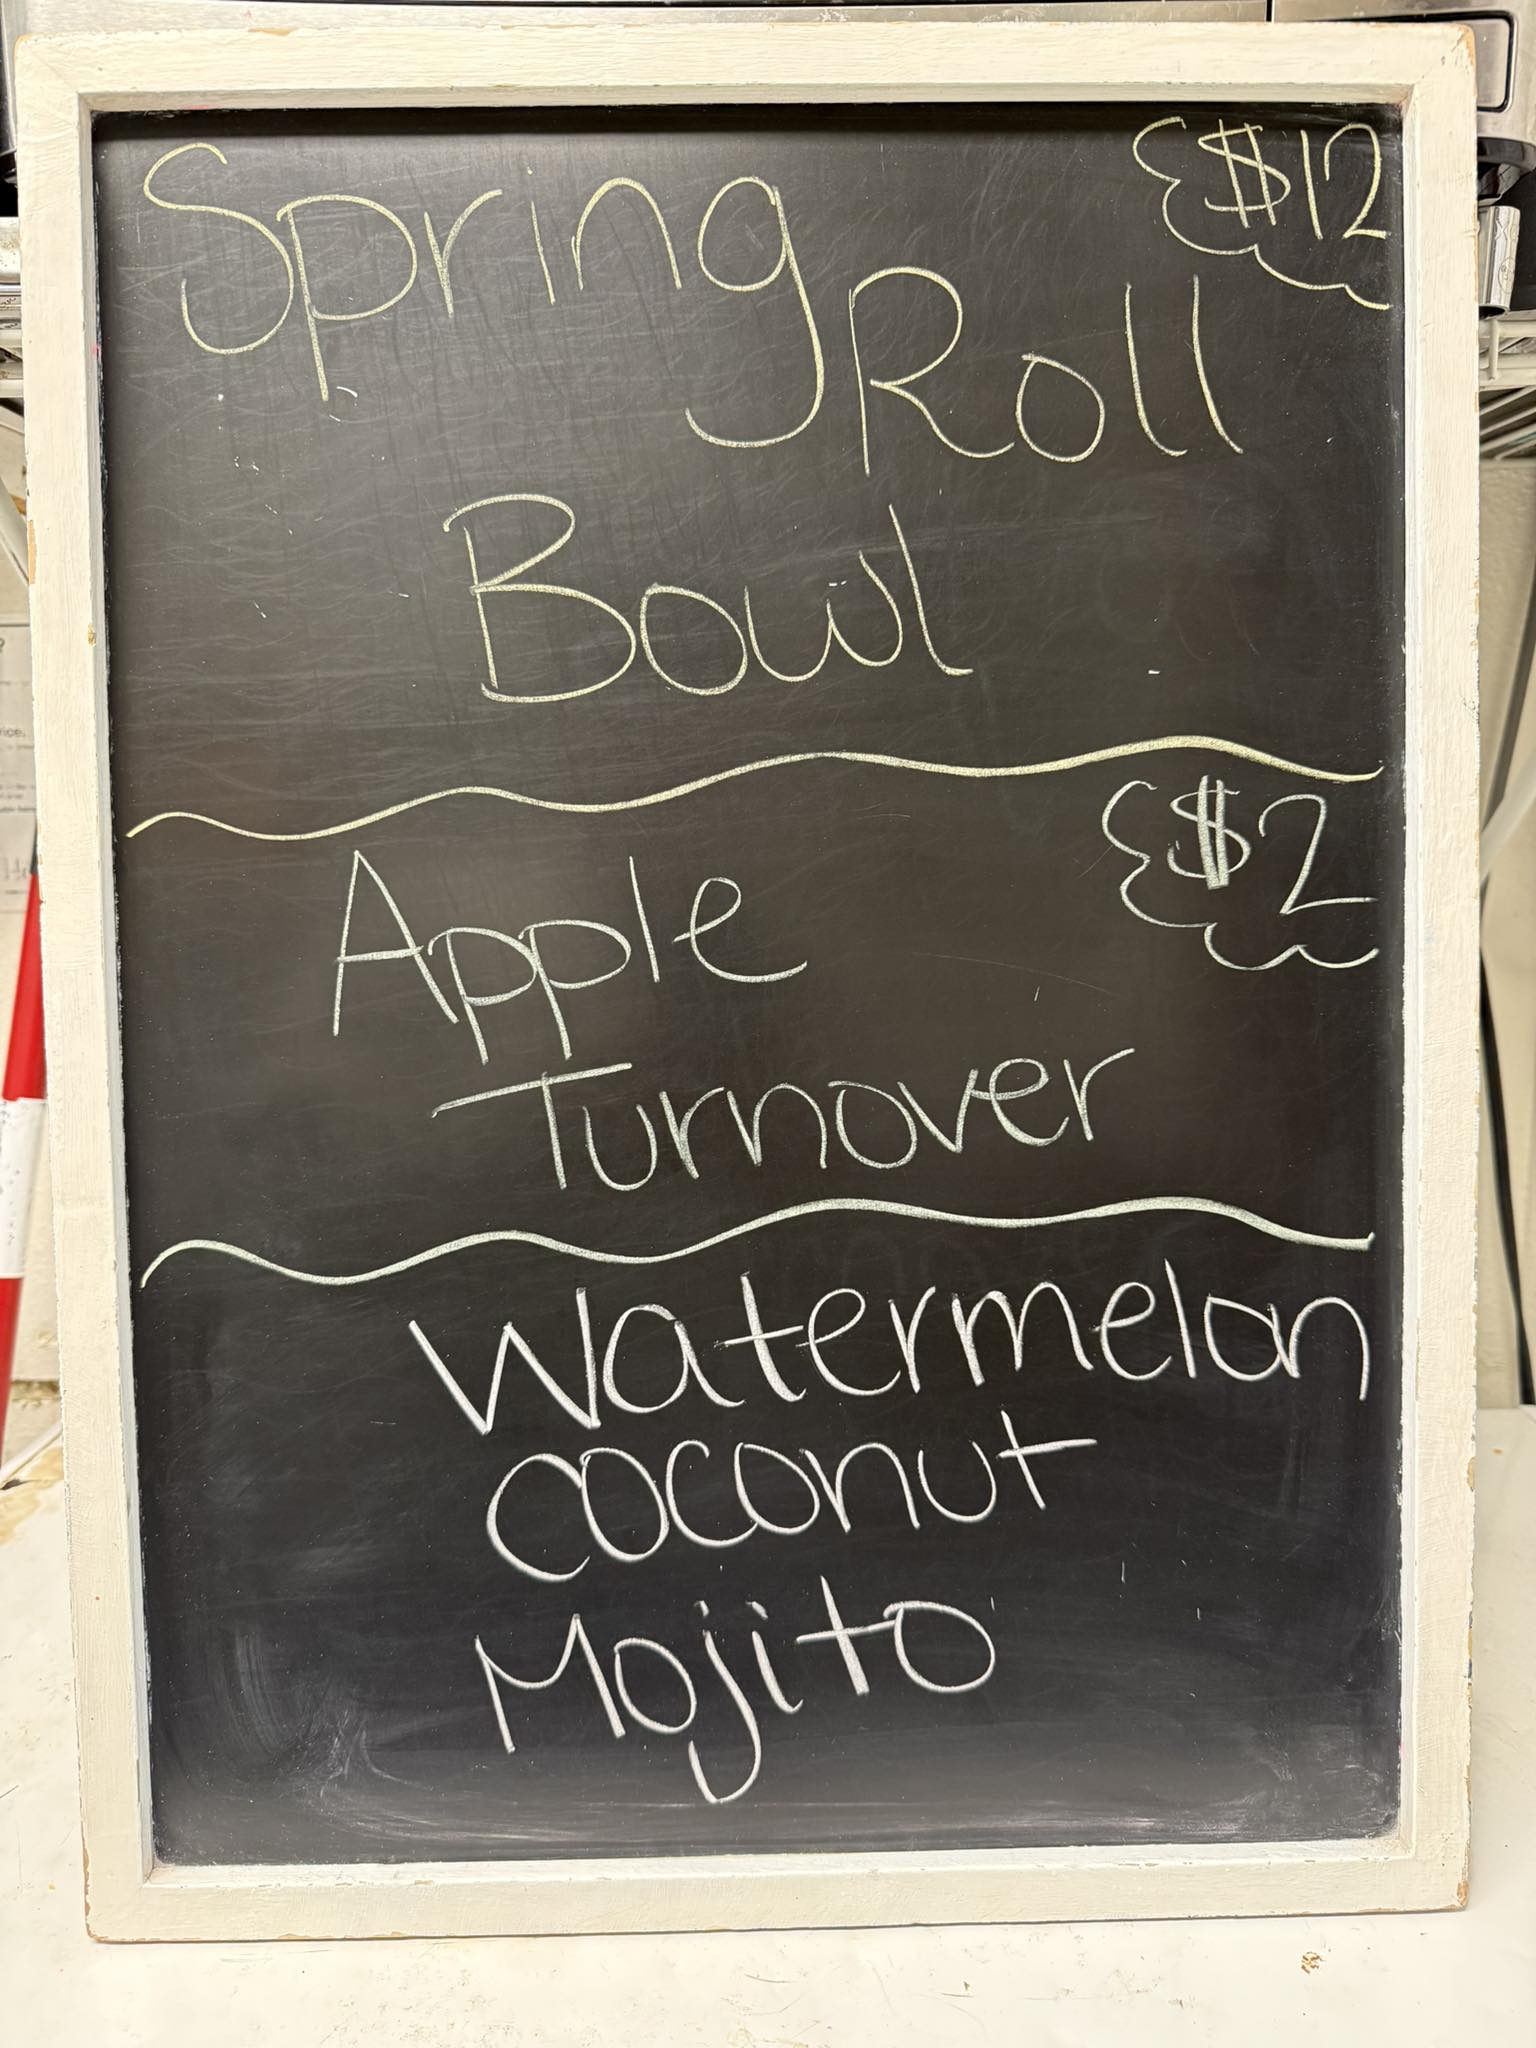 Spring $12
Roll
Bowl
Apple $2
Turnover
Watermelon
coconut
Mojito